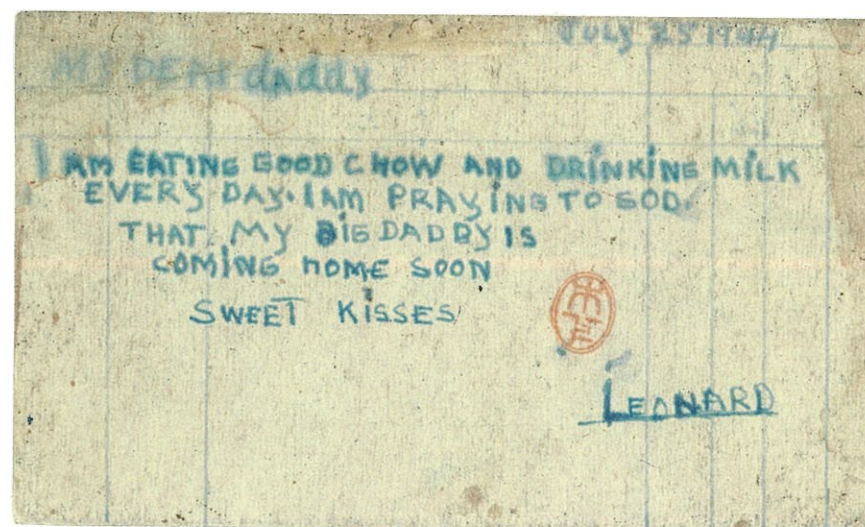 July 25 1944
MY DEAR dAddy
I AM EATING GOOD CHOW AND DRiNKiNG MiLK
EVERY DAY. I AM PRAYiNG TO GOD.
THAT MY BiG DADDY IS
COMiNG HOME SOON
SWEET KiSSES
LEONARD